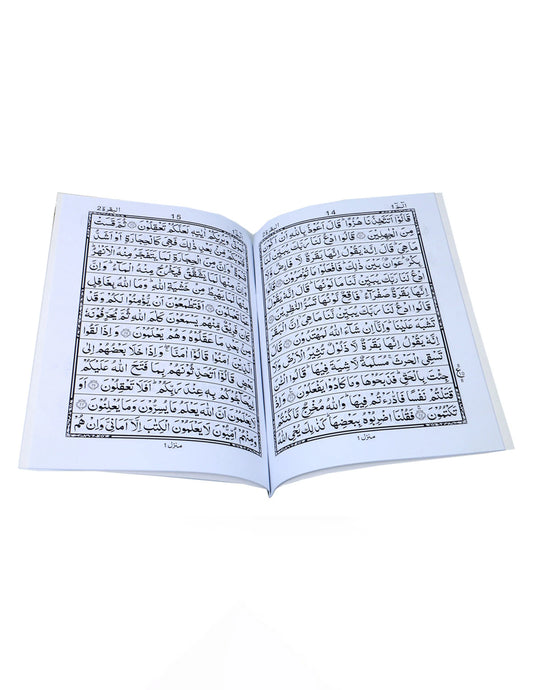 الٓمّٓ ١
14
قَالُوْٓا اَتَتَّخِذُنَا هُزُوًا ؕ قَالَ اَعُوْذُ بِاللّٰهِ اَنْ
مِنَ الْجٰهِلِيْنَ ۝ قَالُوا ادْعُ لَنَا رَبَّكَ يُبَيِّنْ
مَا هِيَ ؕ قَالَ اِنَّهٗ يَقُوْلُ اِنَّهَا بَقَرَةٌ لَّا فَارِضٌ
بِكْرٌ ؕ عَوَانٌۢ بَيْنَ ذٰلِكَ ؕ فَافْعَلُوْا مَا تُؤْمَرُوْنَ
ادْعُ لَنَا رَبَّكَ يُبَيِّنْ لَّنَا مَا لَوْنُهَا ؕ قَالَ اِنَّهٗ يَقُوْلُ
اِنَّهَا بَقَرَةٌ صَفْرَآءُ ۙ فَاقِعٌ لَّوْنُهَا تَسُرُّ النّٰظِرِيْنَ
قَالُوا ادْعُ لَنَا رَبَّكَ يُبَيِّنْ لَّنَا مَا هِيَ ۙ اِنَّ الْبَقَرَ
تَشٰبَهَ عَلَيْنَا ؕ وَاِنَّآ اِنْ شَآءَ اللّٰهُ لَمُهْتَدُوْنَ ۝
قَالَ اِنَّهٗ يَقُوْلُ اِنَّهَا بَقَرَةٌ لَّا ذَلُوْلٌ تُثِيْرُ الْاَرْضَ
تَسْقِي الْحَرْثَ ۚ مُسَلَّمَةٌ لَّا شِيَةَ فِيْهَا ؕ قَالُوا الْـٰٔنَ
جِئْتَ بِالْحَقِّ ؕ فَذَبَحُوْهَا وَمَا كَادُوْا يَفْعَلُوْنَ ۝
قَتَلْتُمْ نَفْسًا فَادّٰرَءْتُمْ فِيْهَا ؕ وَاللّٰهُ مُخْرِجٌ مَّا كُنْتُمْ
تَكْتُمُوْنَ ۝ فَقُلْنَا اضْرِبُوْهُ بِبَعْضِهَا ؕ كَذٰلِكَ يُحْيِ اللّٰهُ
منزل ١
15
البقرة ٢
وَيُرِيْكُمْ اٰيٰتِهٖ لَعَلَّكُمْ تَعْقِلُوْنَ ۝ ثُمَّ قَسَتْ
مِّنْۢ بَعْدِ ذٰلِكَ فَهِيَ كَالْحِجَارَةِ اَوْ اَشَدُّ
وَاِنَّ مِنَ الْحِجَارَةِ لَمَا يَتَفَجَّرُ مِنْهُ الْاَنْهٰرُ ؕ
لَمَا يَشَّقَّقُ فَيَخْرُجُ مِنْهُ الْمَآءُ ؕ وَاِنَّ
لَمَا يَهْبِطُ مِنْ خَشْيَةِ اللّٰهِ ؕ وَمَا اللّٰهُ بِغَافِلٍ
تَعْمَلُوْنَ ۝ اَفَتَطْمَعُوْنَ اَنْ يُّؤْمِنُوْا لَكُمْ وَقَدْ
كَانَ فَرِيْقٌ مِّنْهُمْ يَسْمَعُوْنَ كَلٰمَ اللّٰهِ ثُمَّ يُحَرِّفُوْنَهٗ
مِنْۢ بَعْدِ مَا عَقَلُوْهُ وَهُمْ يَعْلَمُوْنَ ۝ وَاِذَا لَقُوا
اٰمَنُوْا قَالُوْٓا اٰمَنَّا ۚ وَاِذَا خَلَا بَعْضُهُمْ اِلٰى
بَعْضٍ قَالُوْٓا اَتُحَدِّثُوْنَهُمْ بِمَا فَتَحَ اللّٰهُ عَلَيْكُمْ
بِهٖ عِنْدَ رَبِّكُمْ ؕ اَفَلَا تَعْقِلُوْنَ ۝ اَوَ
يَعْلَمُوْنَ اَنَّ اللّٰهَ يَعْلَمُ مَا يُسِرُّوْنَ وَمَا يُعْلِنُوْنَ ۝
وَمِنْهُمْ اُمِّيُّوْنَ لَا يَعْلَمُوْنَ الْكِتٰبَ اِلَّآ اَمَانِيَّ وَاِنْ هُمْ
منزل ١